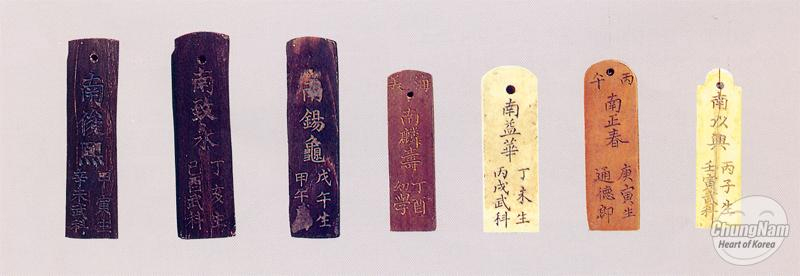 南俊熙
甲寅生
辛未武科
南致永
丁亥生
己酉武科
南錫龜
戊午生
甲午
海
南麟濤
丁酉
幼學
南益華
丁未生
丙戌武科
丙午
南正春
庚寅生
通德郞
南以興
丙子生
壬寅武科
ChungNam
Heart of Korea